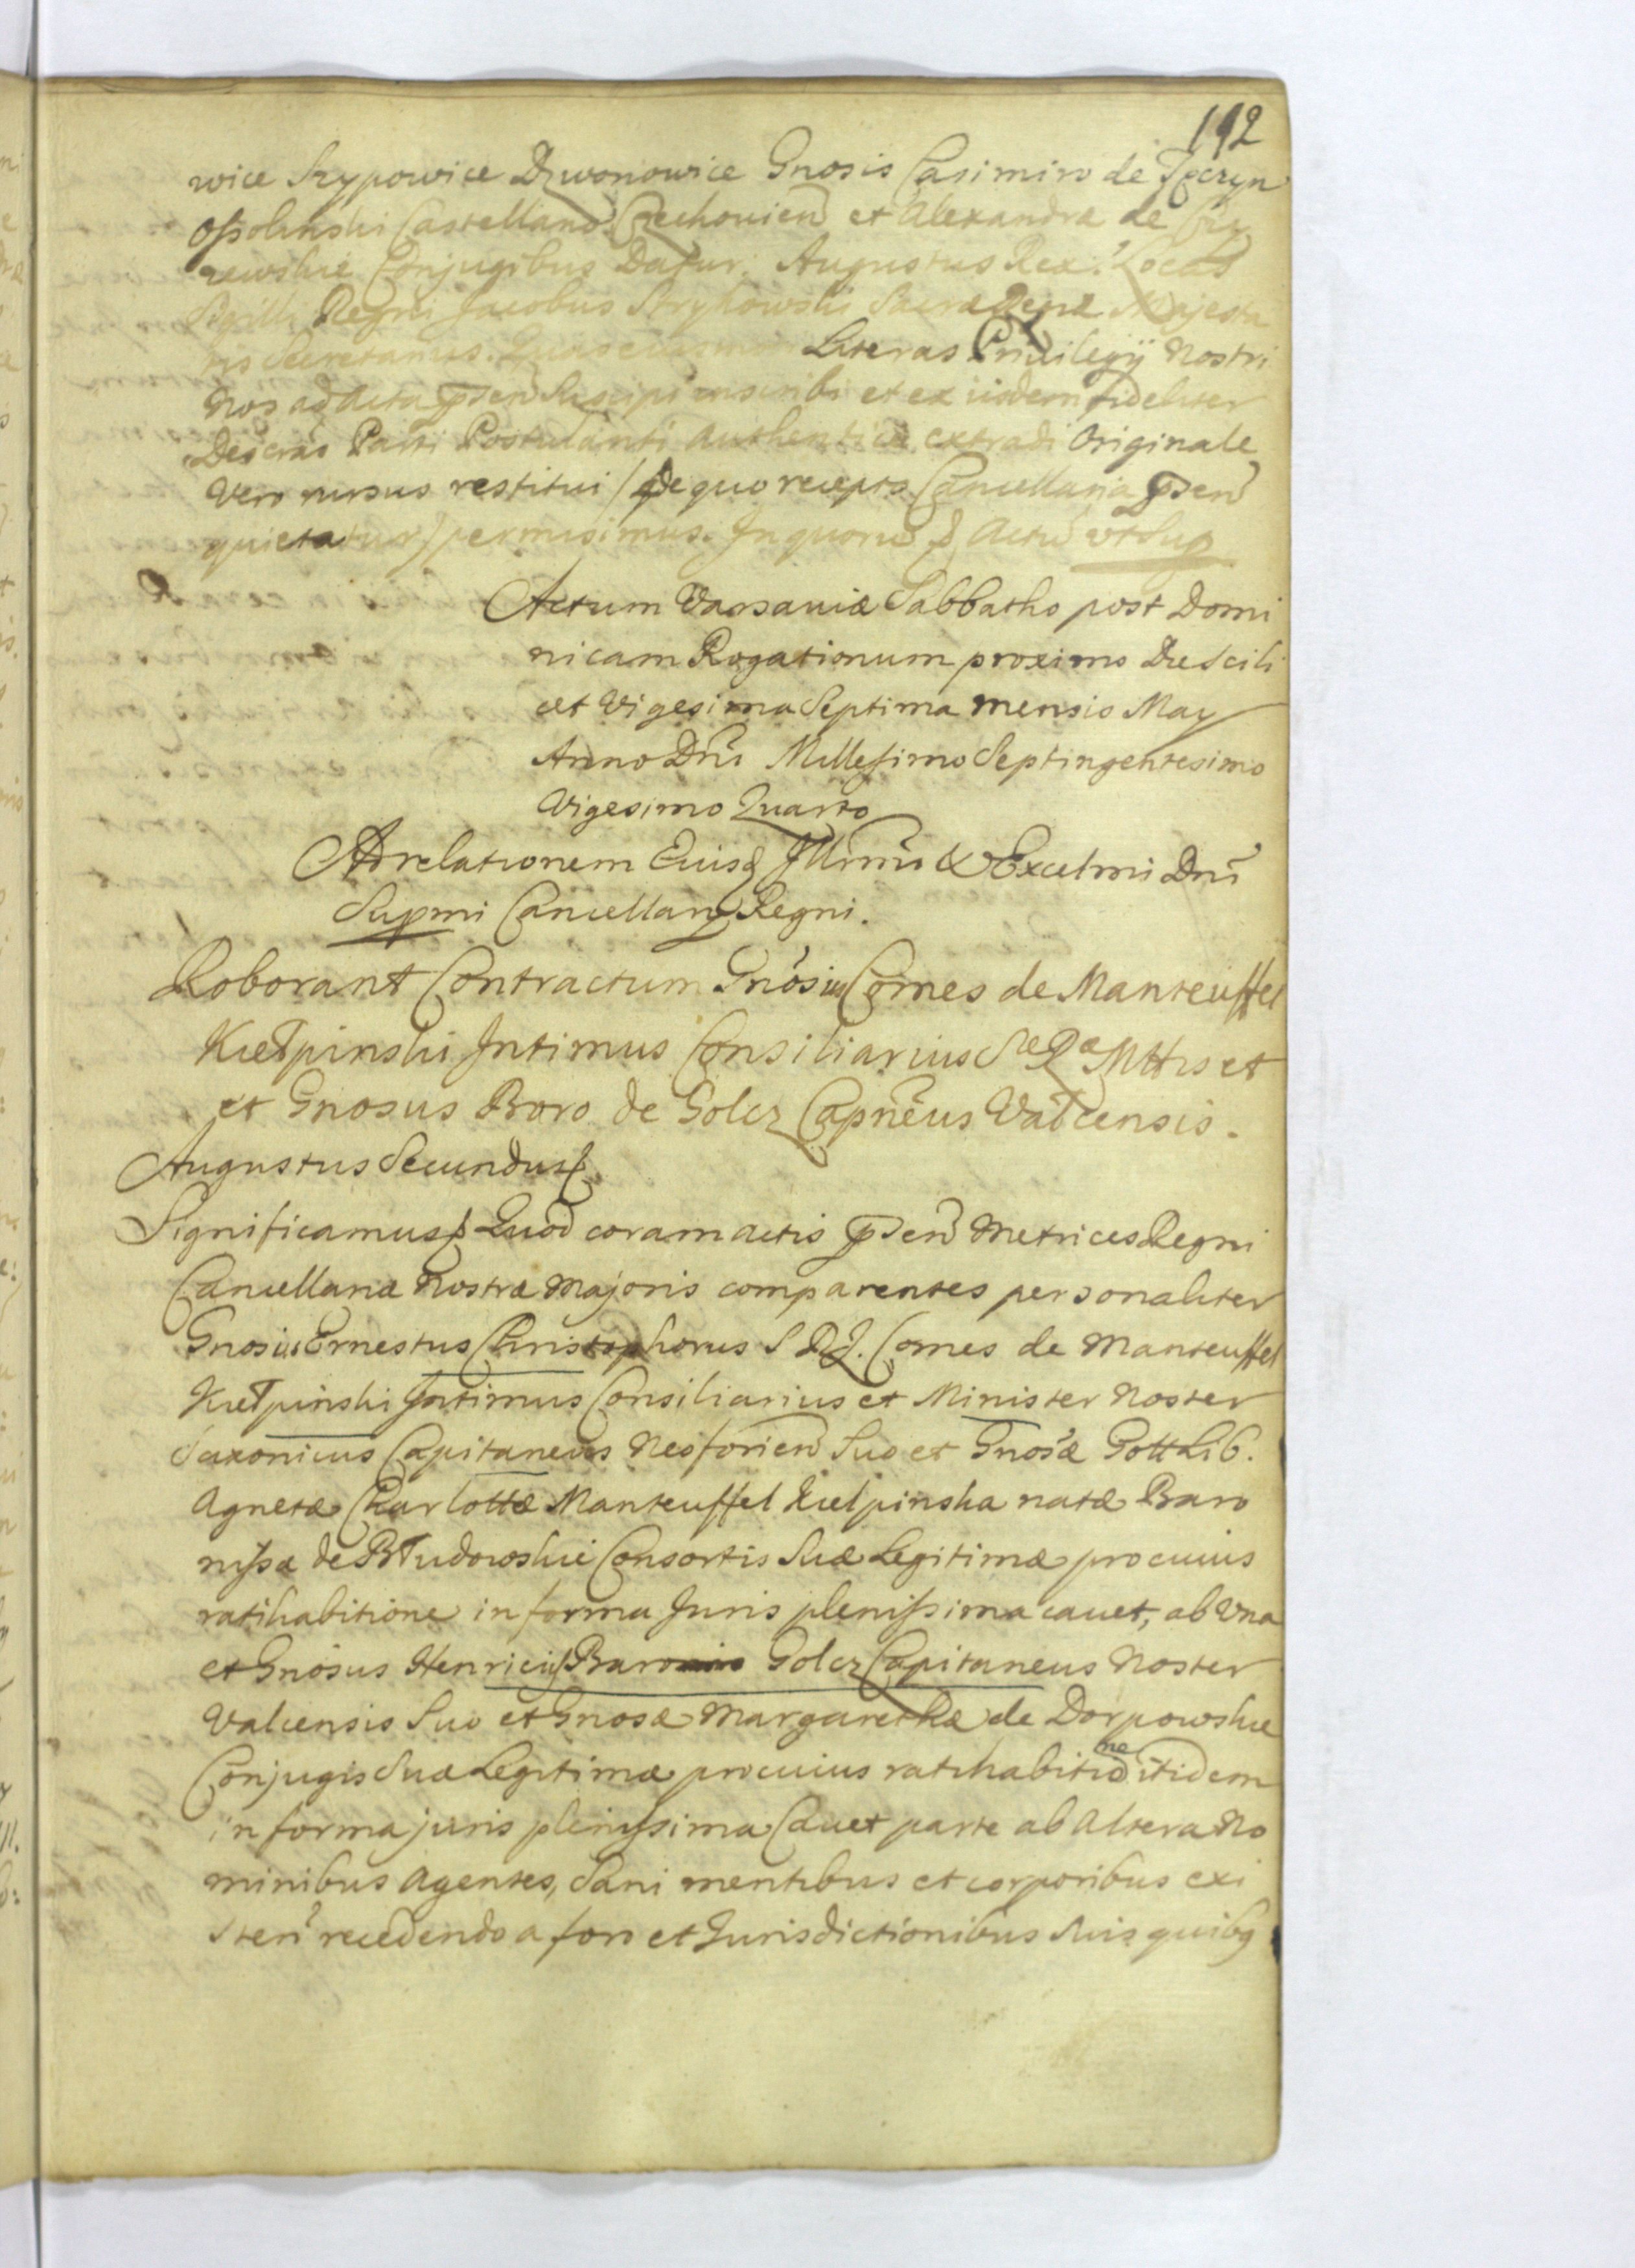 192
wice Szypowice Dzwonowice Gnosis Casimiro de Tęczyn
Ossolinski Castellano Czechouien et Alexandræ de
Conjugibus Datur. Augustus Rex. Locus
Sigilli Regni Jacobus Strykowski Sacræ Regiæ Majesta
tis Secretarius. Literas Priuilegÿ Nostri
Nos ad Acta pnſen Suscipi inscribi et ex iisdem fideliter
Descras Parti Postulanti Authentice extradi Originale
Vero rursus restitui /de quo recepto Cancellaria pnſen
quietatur/ permisimus. In quoru Actu vt Sup
Actum Varsauiæ Sabbatho post Domi
nicam Rogationum proximo Die Scili
cet Vigesima Septima mensis May
Anno Dni Millesimo Septingentesimo
Vigesimo Quarto
Ad relationem Eiusd Illrmi & Excelmi Dni
Supmi Cancellarÿ Regni.
Roborant Contractum Gnosus Comes de Manteuffel
Kiełpinski Intimus Consiliarius Sæ Ræ Mttis et
et Gnosus Baro de Golcz Capneus Valcensis.
Augustus Secundus
Significamus Quod coram actis pnſen Metrices Regni
Cancellariæ Nostræ Majoris comparentes personaliter
Gnosus Ernestus Christophorus S R J. Comes de Manteuffel
Kiełpinski Intimus Consiliarius et Minister Noster
Saxonicus Capitaneus Neoforien Suo et Gnosæ Gottlib.
Agnetæ Charlottæ Manteuffel Kielpinska natæ Baro
nissæ de Błudowskie Consortis Suæ Legitimæ pro cuius
ratihabitione in forma Juris plenissima cauet, ab Vna
et Gnosus Henricus Baro Golcz Capitaneus Noster
Valcensis Suo et Gnosæ Margarethæ de Dorpowskie
Conjugis Suæ Legitimæ pro cuius ratihabitione itidem
in forma juris plenissima Cauet parte ab Altera No
minibus Agentes, Sani mentibus et corporibus exi
sten recedendo a foro et Jurisdictionibus Suis quibq